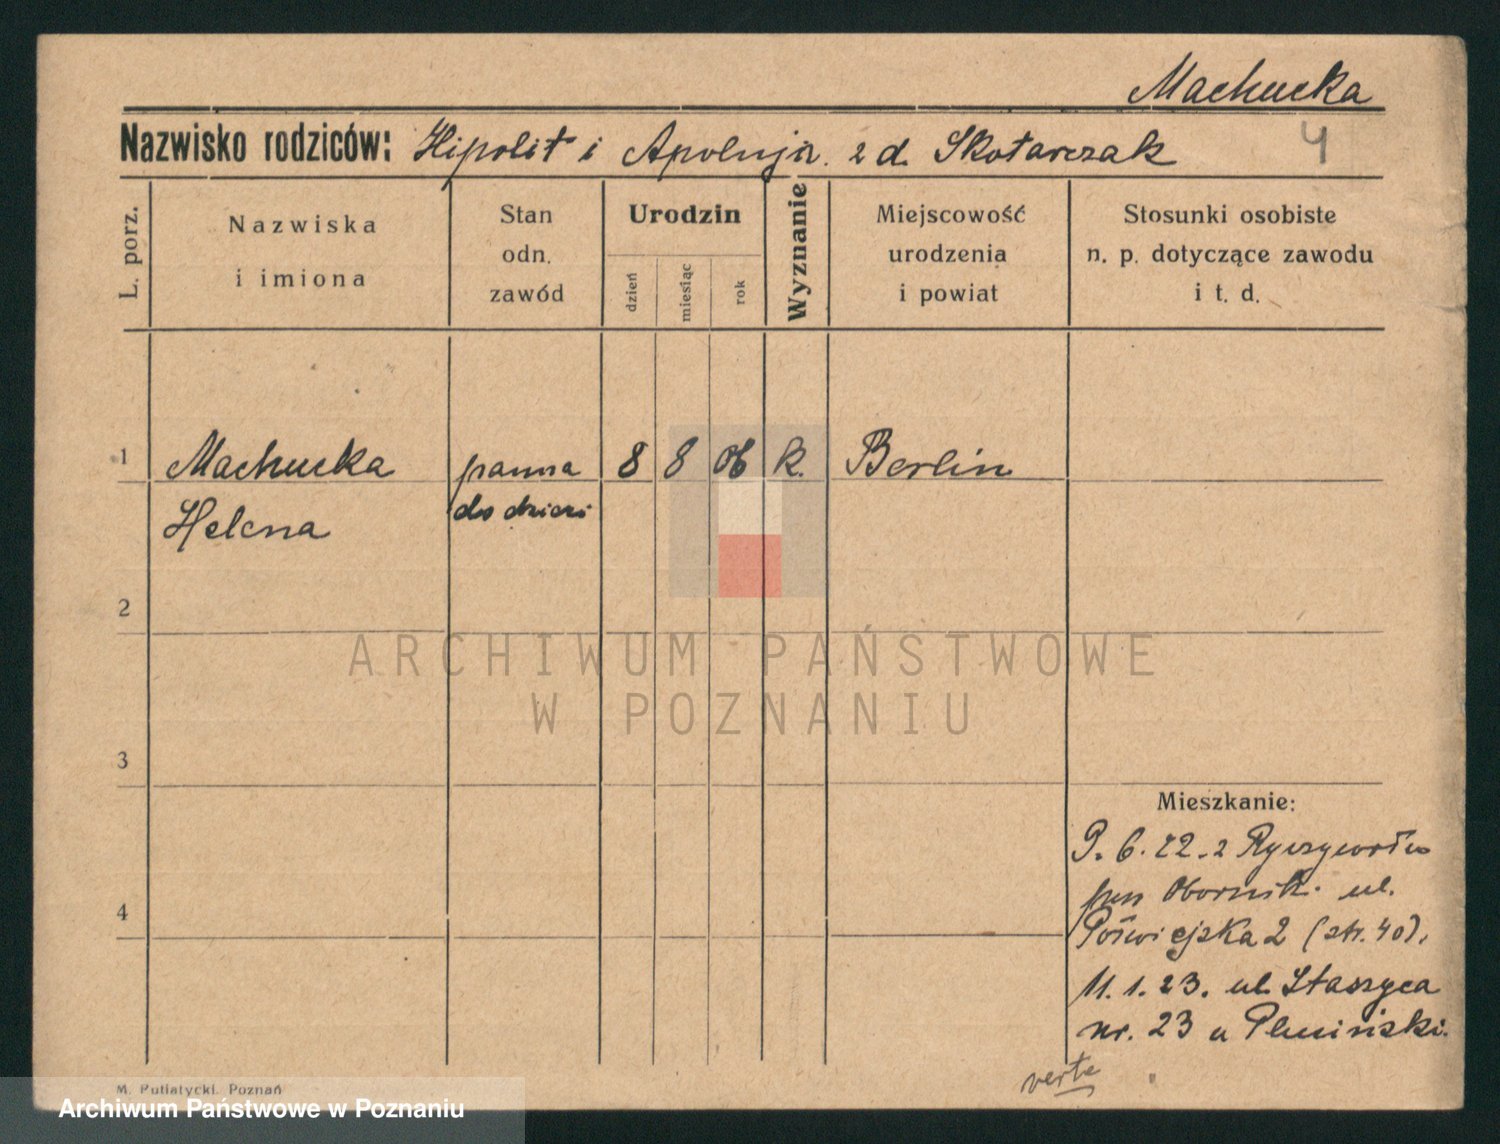 Machucka
Nazwisko rodziców: Hipolit i Apolnja. z d. Skotarczak
4
L. porz.
Nazwiska
i imiona
Stan
odn.
zawód
Urodzin
dzień
miesiąc
rok
Wyznanie
Miejscowość
urodzenia
i powiat
Stosunki osobiste
n. p. dotyczące zawodu
i t. d.
1
Machucka
Helena
panna
do dzieci
8
8
06
k.
Berlin
2
ARCHIWUM PAŃSTWOWE
W POZNANIU
3
Mieszkanie:
P. 6. 22-2
pow Obornik. ul.
Poświejska 2 (str. 40).
4
11. 1. 23. ul. Staszyca
nr. 23 u Plusiński.
verte
M. Putiatycki. Poznań
Archiwum Państwowe w Poznaniu